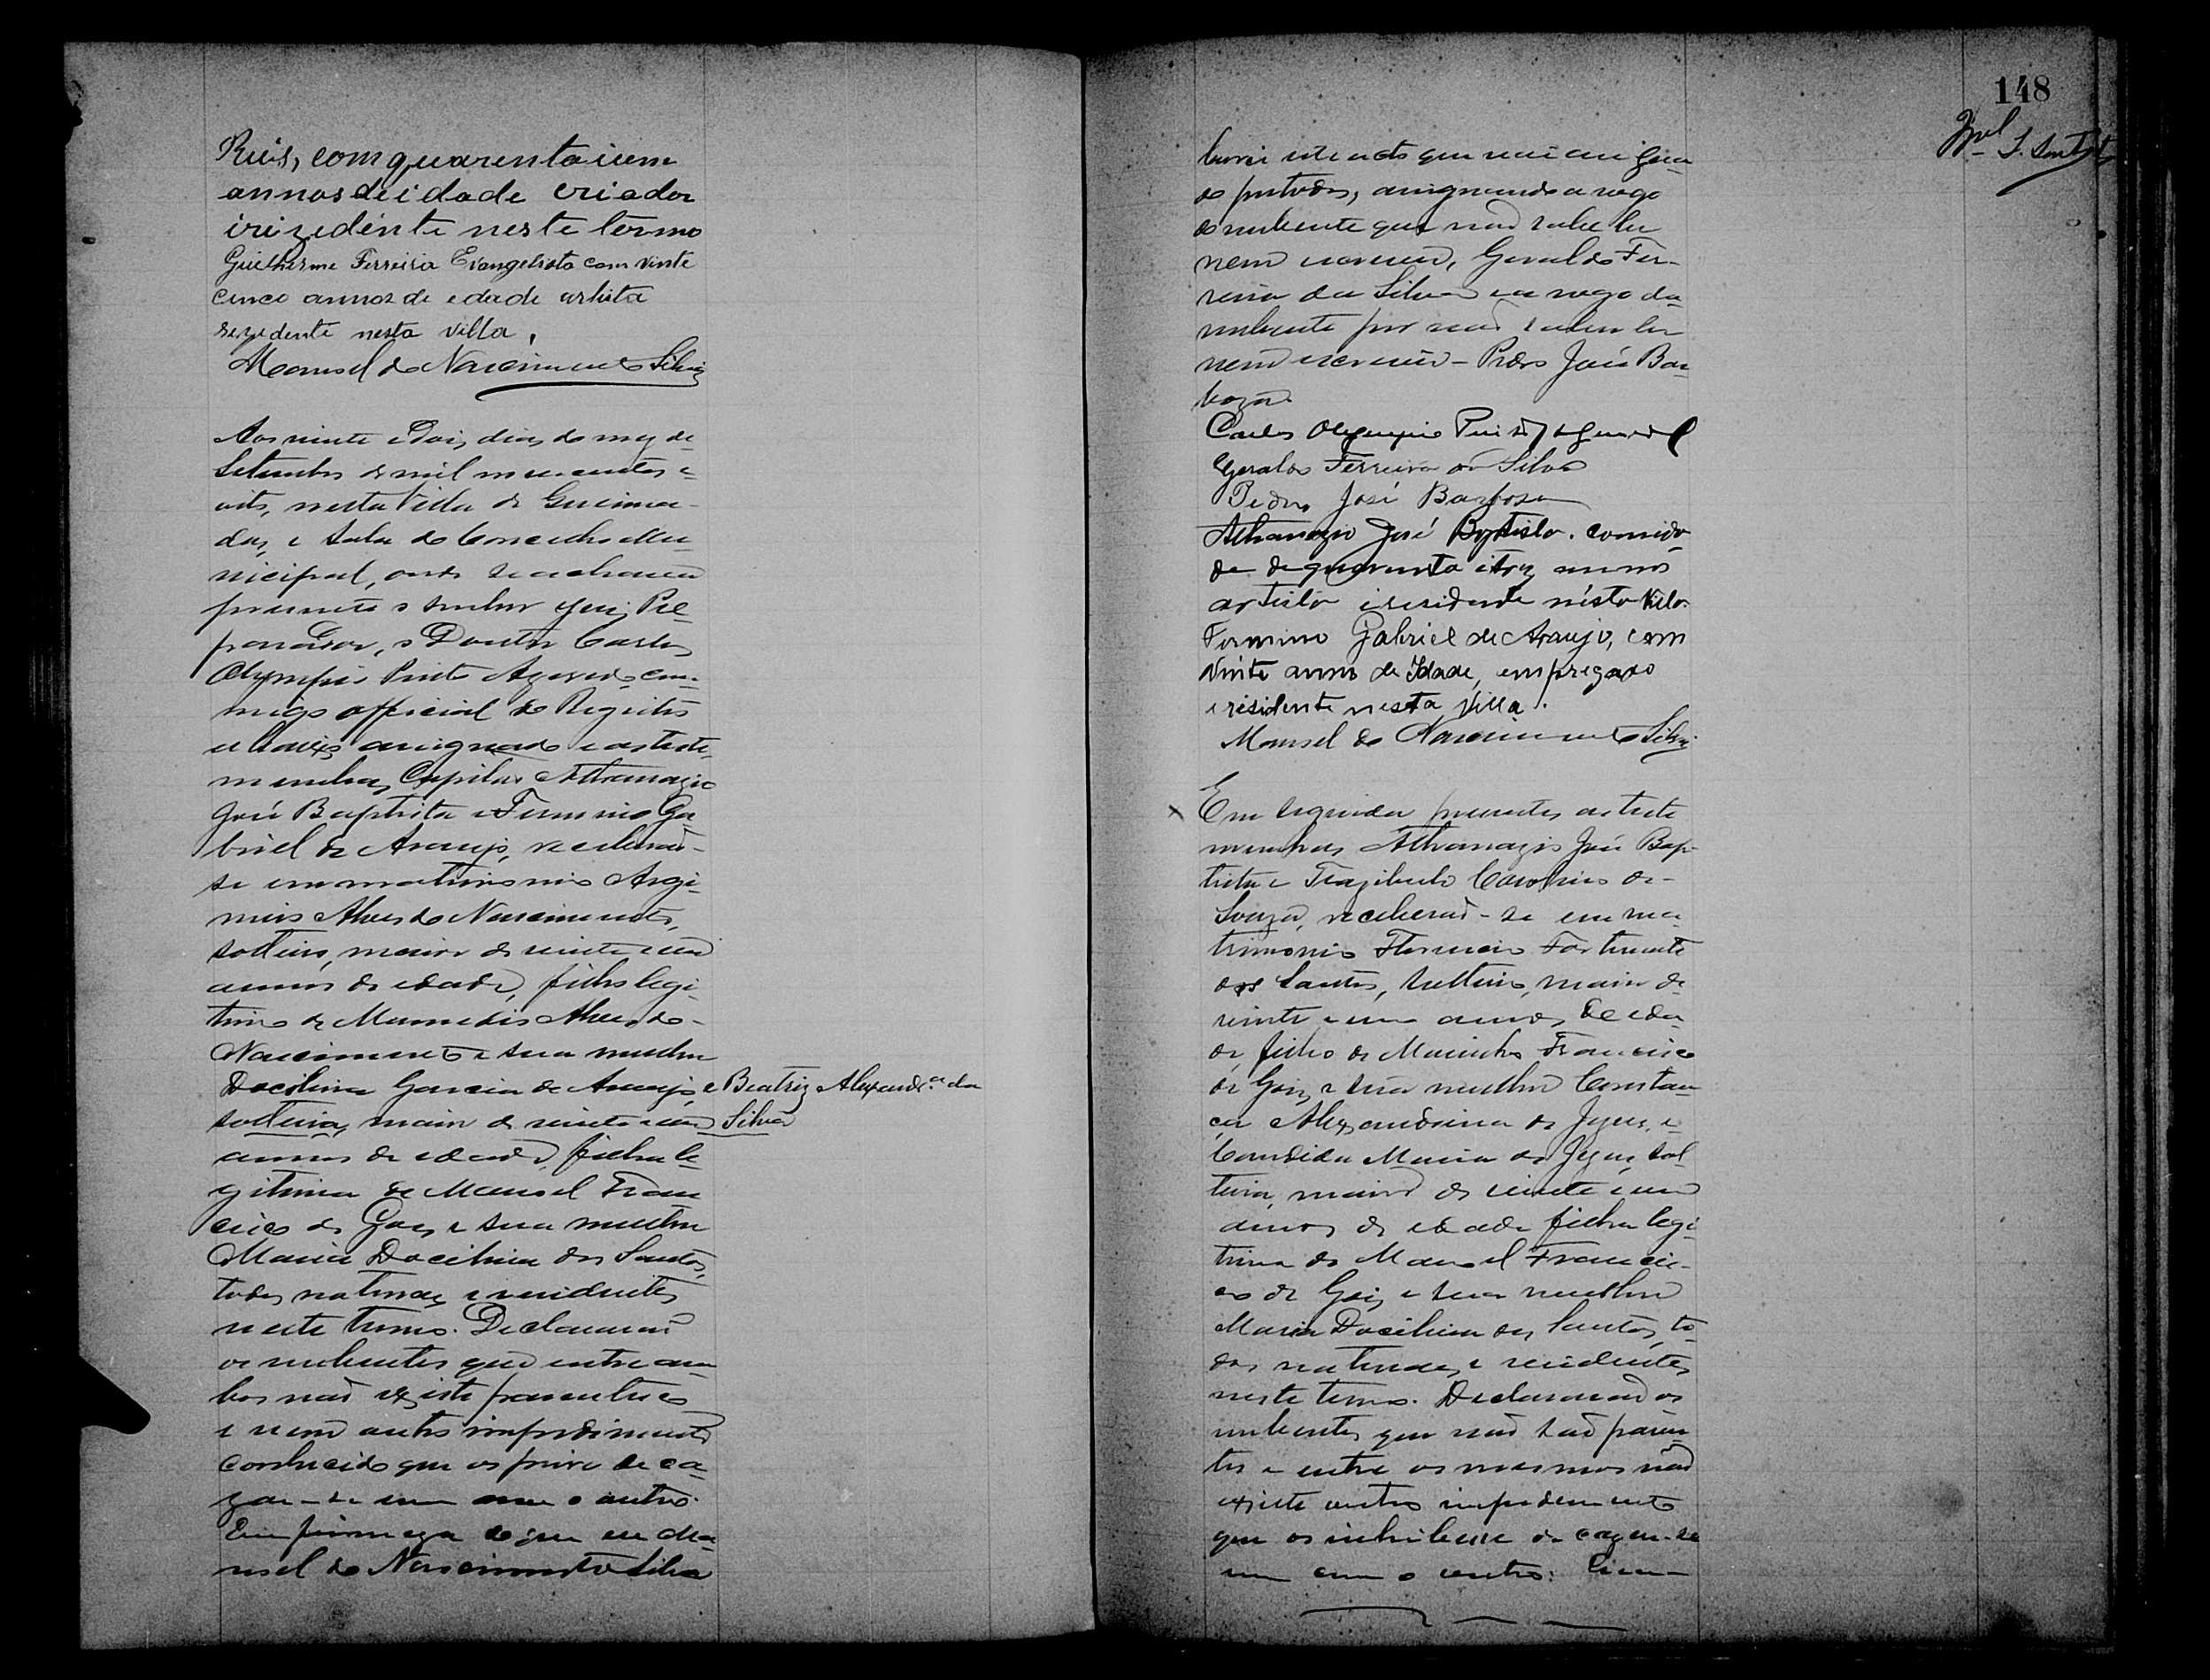 Reis, com quarenta i um
annos de idade criador
i rizedente neste termo
Guilherme Ferreira Evangelista com vinte
cinco annos de edade artista
rezedente nesta villa,
Manoel do Nascimento Silva
Aos vinte e dois dias do mez de
Setembro de mil novecentos e
oito, nesta Villa de Queima-
das, e Sala do Conselho Mu-
nicipal, onde se achava
presente o senhor Juiz Pre-
parador, o Doutor Carlos
Olympio Pinto Azevedo, com-
migo official do Registro
abaixo assignado e as teste-
munhas Capitão Athanazio
José Baptista e Firmino Ga-
briel de Araujo, receberaõ-
se em matrimonio Argi-
miro Alves do Nascimento,
solteiro, maior de vinte e um
annos de edade, filho legi-
timo de Mamedio Alves do
Nascimento e sua mulher
Docilina Garcia de Araujo, e Beatriz Alexandr.ª da
Silva
solteira, maior de vinte e um
annos de edade, filha le-
gitima de Manoel Fran-
cisco de Goes e sua mulher
Maria Docilina dos Santos,
todos naturaes e residentes
neste termo. Declararaõ
os nubentes que entre am-
bos naõ existe parentesco
e nem outro impedimento
conhecido que os prive de ca-
zar-se um com o outro.
Em firmeza do que eu Ma-
noel do Nascimento Silva
148
lavrei este acto que vai assigna-
do por todos, assignando a rogo
do nubente que naõ sabe ler
nem escrever, Geraldo Fer-
reira da Silva e a rogo da
nubente por naõ saber ler
nem escrever - Pedro José Bar-
boza.
Carlos Olympio Pinto d'Azevedo
Geraldo Ferreira da Silva
Pedro José Barbosa
Athanazio José Baptista. com ida-
de de quarenta i trez annos
artista i residente nésta Villa.
Firmino Gabriel de Araujo, com
vinte anno de Idade, empregado
e residente nesta Villa.
Manoel do Nascimento Silva
Em seguida presentes as teste
munhas Athanazio José Bap-
tista e Trazibulo Cardoso de
Souza, receberaõ-se em ma-
trimonio Florencio Fortunato
dos Santos, solteiro, maior de
vinte e um annos, de eda-
de filho de Marinho Francisco
de Goes e sua mulher Constan-
ça Alexandrina de Jezus, e
Candida Maria de Jezus, sol-
teira, maior de vinte e um
annos de edade filha legi-
tima de Manoel Francis-
co de Goes e sua mulher
Maria Docilina dos Santos, to-
dos naturaes e residentes
neste termo. Declararaõ os
nubentes que naõ saõ paren-
tes e entre os mesmos naõ
existe outro impedimento
que os inhibisse de cazar-se
um com o outro.